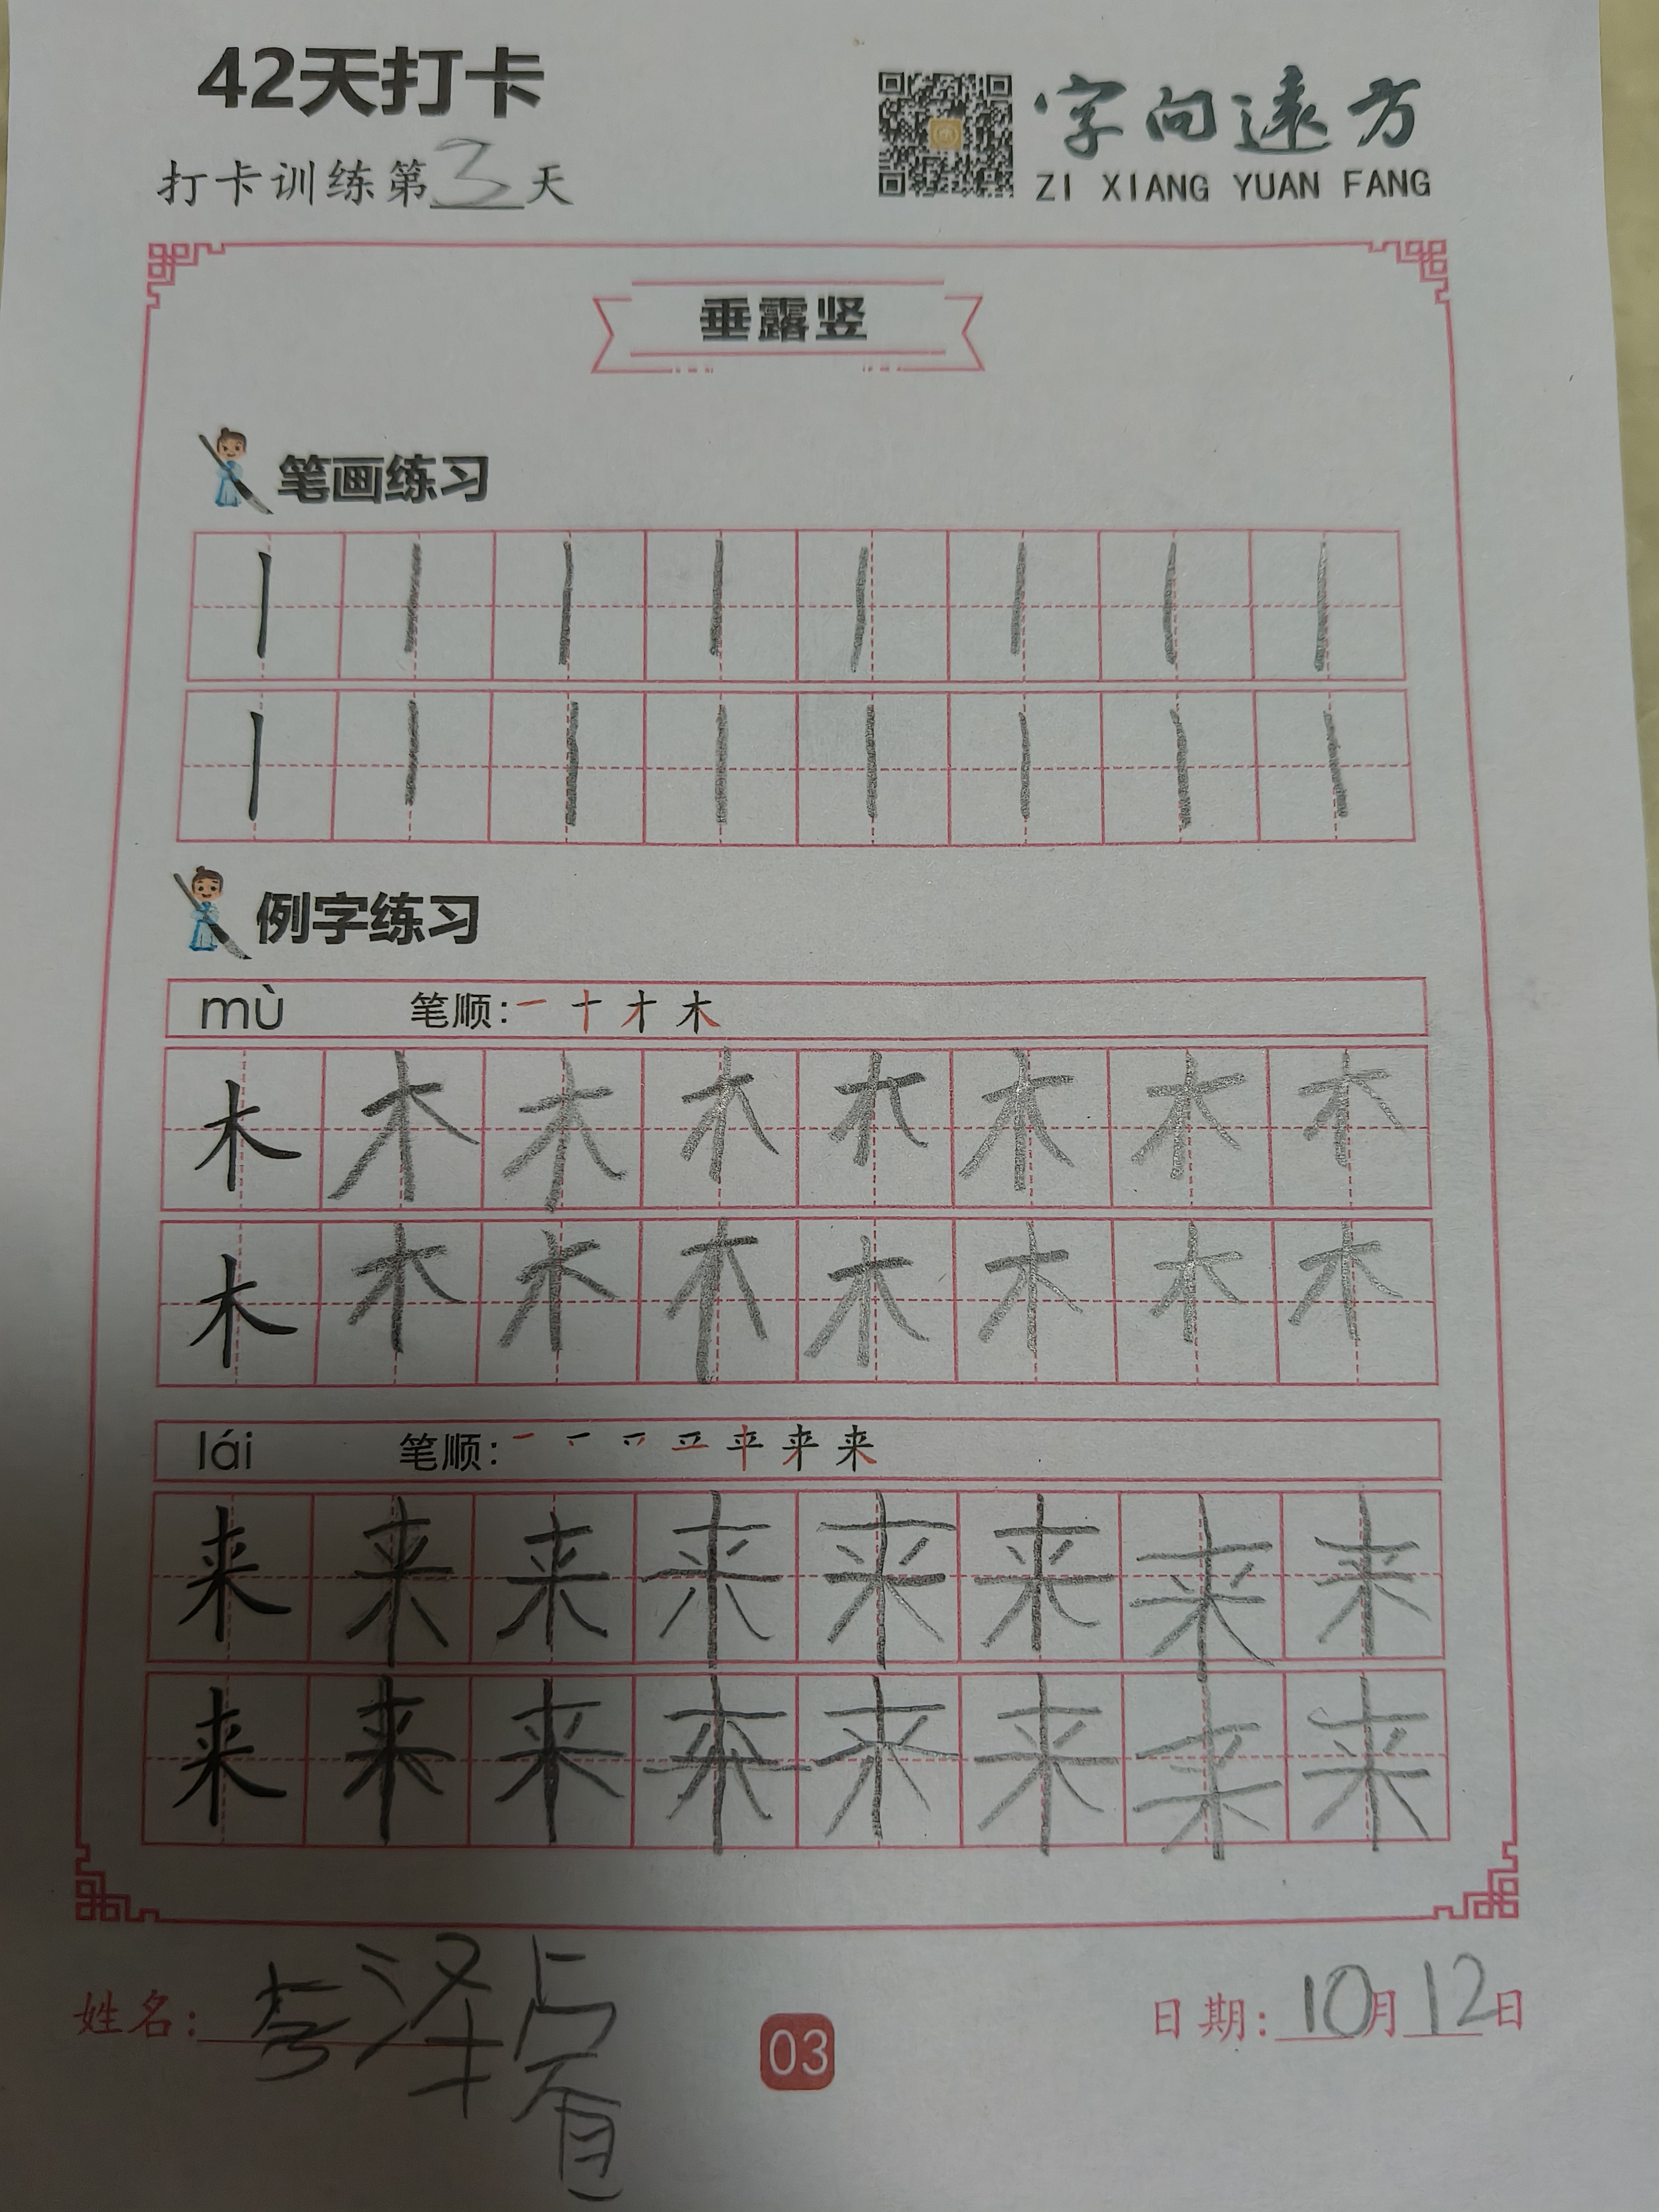 42天打卡
字向遠方
ZI XIANG YUAN FANG
打卡训练第3天
垂露竖
笔画练习
丨丨丨丨丨丨丨丨
丨丨丨丨丨丨丨丨
例字练习
mù 笔顺: 一 十 才 木
木木木木木木木木
木木木木木木木木
lái 笔顺: 来
来来来来来来来来
来来来来来来来来
姓名: 泽
03
日期: 10月12日